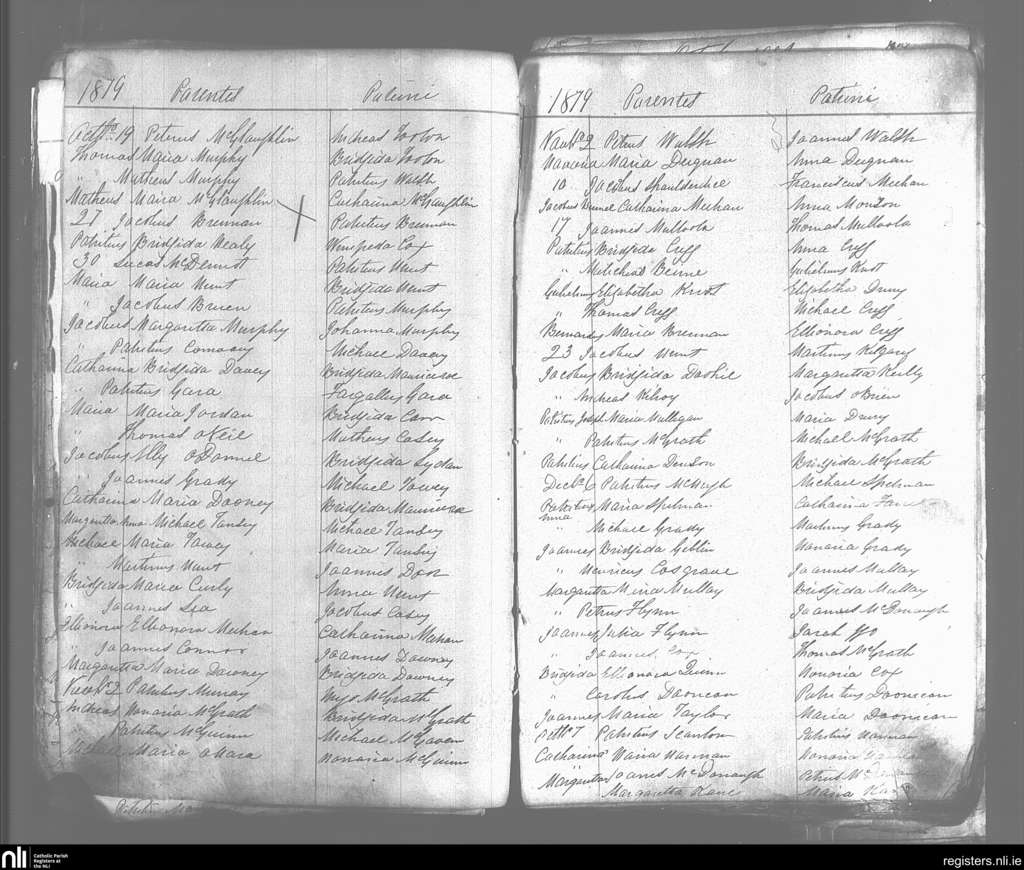 1879 Parentes Patrini
Octbr 19 Petrus McGlaughlin Andreas Forbon
Thomas Maria Murphy Bridgida Forbon
" Matheus Murphy Patritius Walsh
Matheus Maria McGlaughlin Catharina McGlaughlin
27 Jacobus Brennan Patritius Brennan
Patritius Bridgida Healy Winifreda Cox
30 Lucas McDermott Patritius Hunt
Maria Maria Hunt Bridgida Hunt
" Jacobus Bruen Patritius Murphy
Jacobus Margaritta Murphy Johanna Murphy
" Patritius Conway Michael Davey
Catharina Bridgida Davey Bridgida
" Patritius Gara Gara
Maria Maria Jordan Bridgida Carr
" Thomas ONeil Matheus Casey
Jacobus Elly ODonnel Bridgida Lydan
" Joannes Grady Michael Towey
Catharina Maria Dooney Bridgida
Margaritta Anna Michael Tansey Michael Tansey
Michael Maria Towey Maria Tansey
" Martinus Hunt Joannes
Bridgida Maria Curly Anna Hunt
" Joannes Lea Jacobus Casey
Elleonora Elleonora Meehan Catharina Mahan
" Joannes Connor Joannes Downey
Margaritta Maria Downey Bridgida Downey
Novbr 2 Patritius Murray Hugo McGrath
Andreas Honoria McGrath Bridgida McGrath
" Patritius McGuinn Michael McGowen
Michael Maria OHara Honoria McGuinn
1879 Parentes Patrini
Novbr 2 Petrus Walsh Joannes Walsh
Honoria Maria Duignan Anna Duignan
10 Jacobus Franciscus Meehan
Jacobus Catharina Meehan Anna
17 Joannes Mulloola Thomas Mulloola
Patritius Bridgida Cuff Anna Cuff
" Beirne Gulielmus Knot
Gulielmus Elizabetha Knot Elizabetha Drury
" Thomas Cuff Michael Cuff
Bernard Maria Brennan Elleonora Cuff
23 Jacobus Hunt Martinus Kilgary
Jacobus Bridgida Margaritta Kielly
" Andreas Kilroy Jacobus OBrien
Patritius Joseph Maria Mulligan Maria Drury
" Patritius McGrath Michael McGrath
Patritius Catharina Denson Bridgida McGrath
Decbr 6 Patritius McHugh Michael Spelman
Patritius Maria Spelman Catharina
Anna
" Michael Grady Martinus Grady
Joannes Bridgida Giblin Honoria Grady
" Henricus Cosgrave Joannes Mullay
Margaritta Maria Mullay Bridgida Mullay
" Petrus Flynn Joannes McDonaugh
Joannes Julia Flynn Sarah
" Joannes Cox Thomas McGrath
Bridgida Elleonora Quinn Honoria Cox
" Carolus Doonican Patritius Doonican
Joannes Maria Taylor Maria Doonican
7 Patritius Scanlon Patritius Harman
Catharina Maria Harman Honoria
Joannes McDonaugh Petrus
Margaritta Margaretta Kane Maria
nli Catholic Parish
Registers at
the NLI
registers.nli.ie